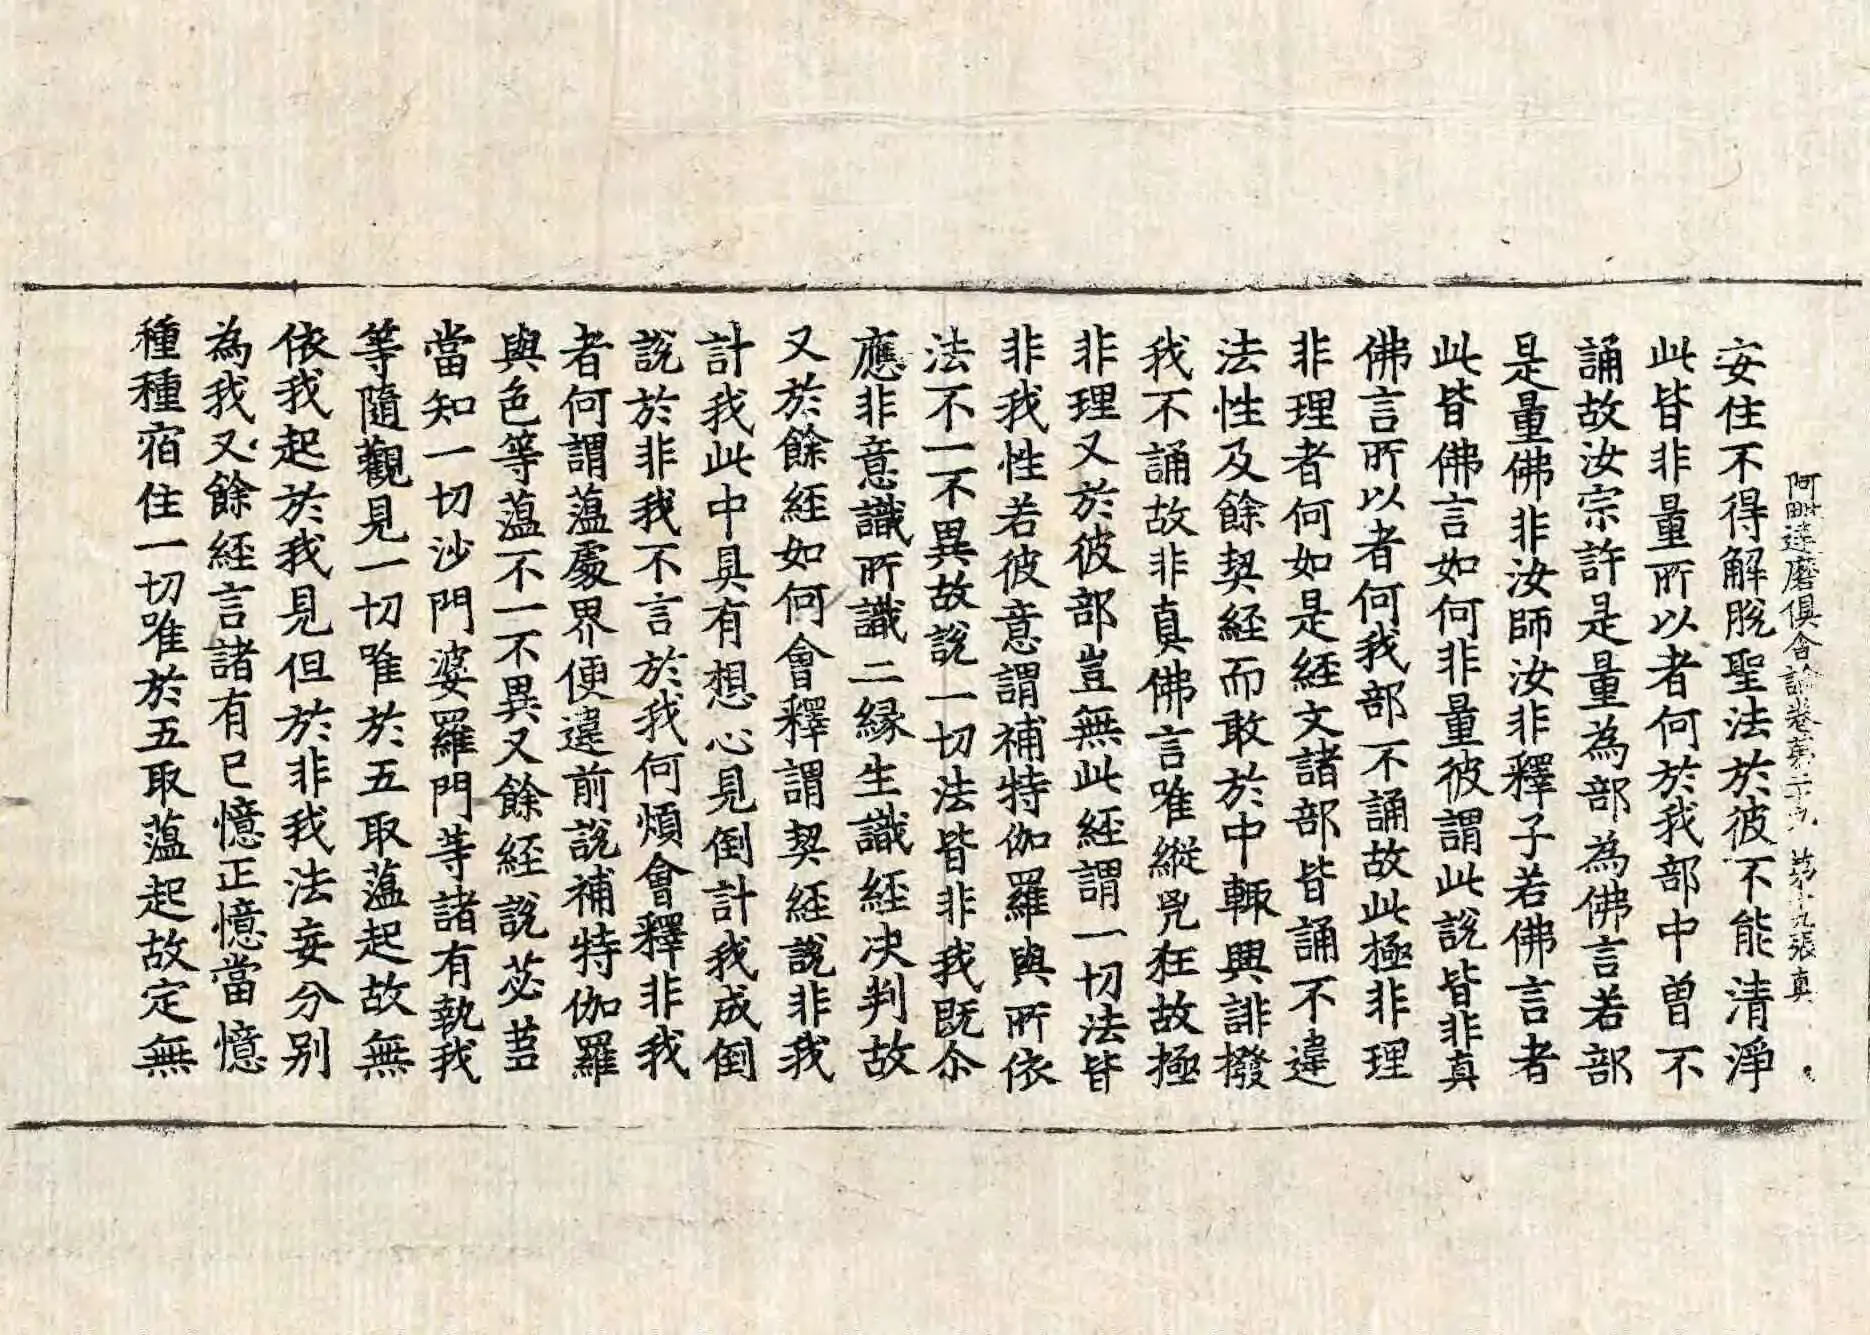 阿毗達磨俱舍論卷第二十九 第十九張 真
安住不得解脫聖法於彼不能清淨
此皆非量所以者何於我部中曾不
誦故汝宗許是量為部為佛言若部
是量佛非汝師汝非釋子若佛言者
此皆佛言如何非量彼謂此說皆非真
佛言所以者何我部不誦故此極非理
非理者何如是經文諸部皆誦不違
法性及餘契經而敢於中輒興誹撥
我不誦故非真佛言唯縱兇狂故極
非理又於彼部豈無此經謂一切法皆
非我性若彼意謂補特伽羅與所依
法不一不異故說一切法皆非我既尒
應非意識所識二緣生識經決判故
又於餘經如何會釋謂契經說非我
計我此中具有想心見倒計我成倒
說於非我不言於我何煩會釋非我
者何謂薀處界便違前說補特伽羅
與色等薀不一不異又餘經說苾芻
當知一切沙門婆羅門等諸有執我
等隨觀見一切唯於五取薀起故無
依我起於我見但於非我法妄分別
為我又餘經言諸有已憶正憶當憶
種種宿住一切唯於五取薀起故定無